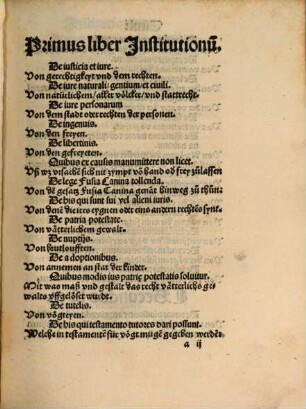 Primus liber Institutionū.
De iusticia et iure.
Von gerechtigkeyt vnd dem rechten.
De iure naturali/gentium/et ciuili.
Von natürlichem/aller völcker/vnd stattrecht.
De iure personarum
Von dem stadt oder rechten der personen.
De ingenuis.
Von den freyen.
De libertinis.
Von den gefreyeten.
Quibus ex causis manumittere non licet.
Vß wz vrsachē sich nit zympt vō hand vō frey zůlassen
De lege Fusia Canina tollenda.
Von dē gesatz Fusia Canina genāt hinweg zů thūn
De his qui sunt sui vel alieni iuris.
Von denē die ires eygnen oder eins andern rechtēs synt.
De patria potestate.
Von vätterlichem gewalt.
De nuptijs.
Von brutloufften.
De adoptionibus.
Von annemen an stat der kindet.
Quibus modis ius patrie potestatis soluitur.
Mit was maß vnd gestalt das recht vätterlichs ge
walts vffgelöset wurdt.
De tutelis.
Von vögteyen.
De his qui testamento tutores dari possunt.
Welche in testamentē für vögt mügē gegeben werdēt
a ij